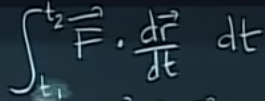 ∫_{t₁}^{t₂} F⃗ · dr⃗/dt dt